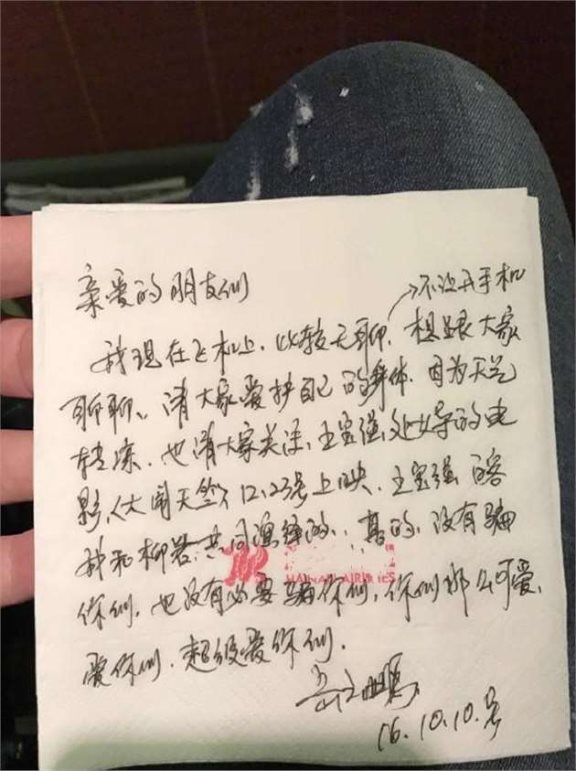 亲爱的朋友们
不让开手机
我现在飞机上，比较无聊，想跟大家
聊聊、请大家爱护自己的身体，因为天气
转凉，也请大家关注，王宝强处女导的电
影《大闹天竺》12.23号上映，王宝强 白客
我和柳岩共同演绎的，真的，没有骗
你们，也没有必要骗你们，你们那么可爱，
爱你们，超级爱你们.
岳云鹏
16.10.10.号